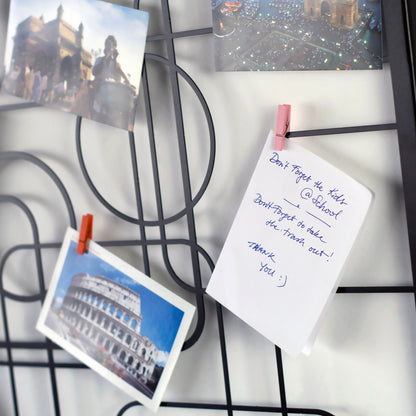 Don't Forget the Kids
@School
Don't Forget to take
the trash out!
THANK
YOU :)